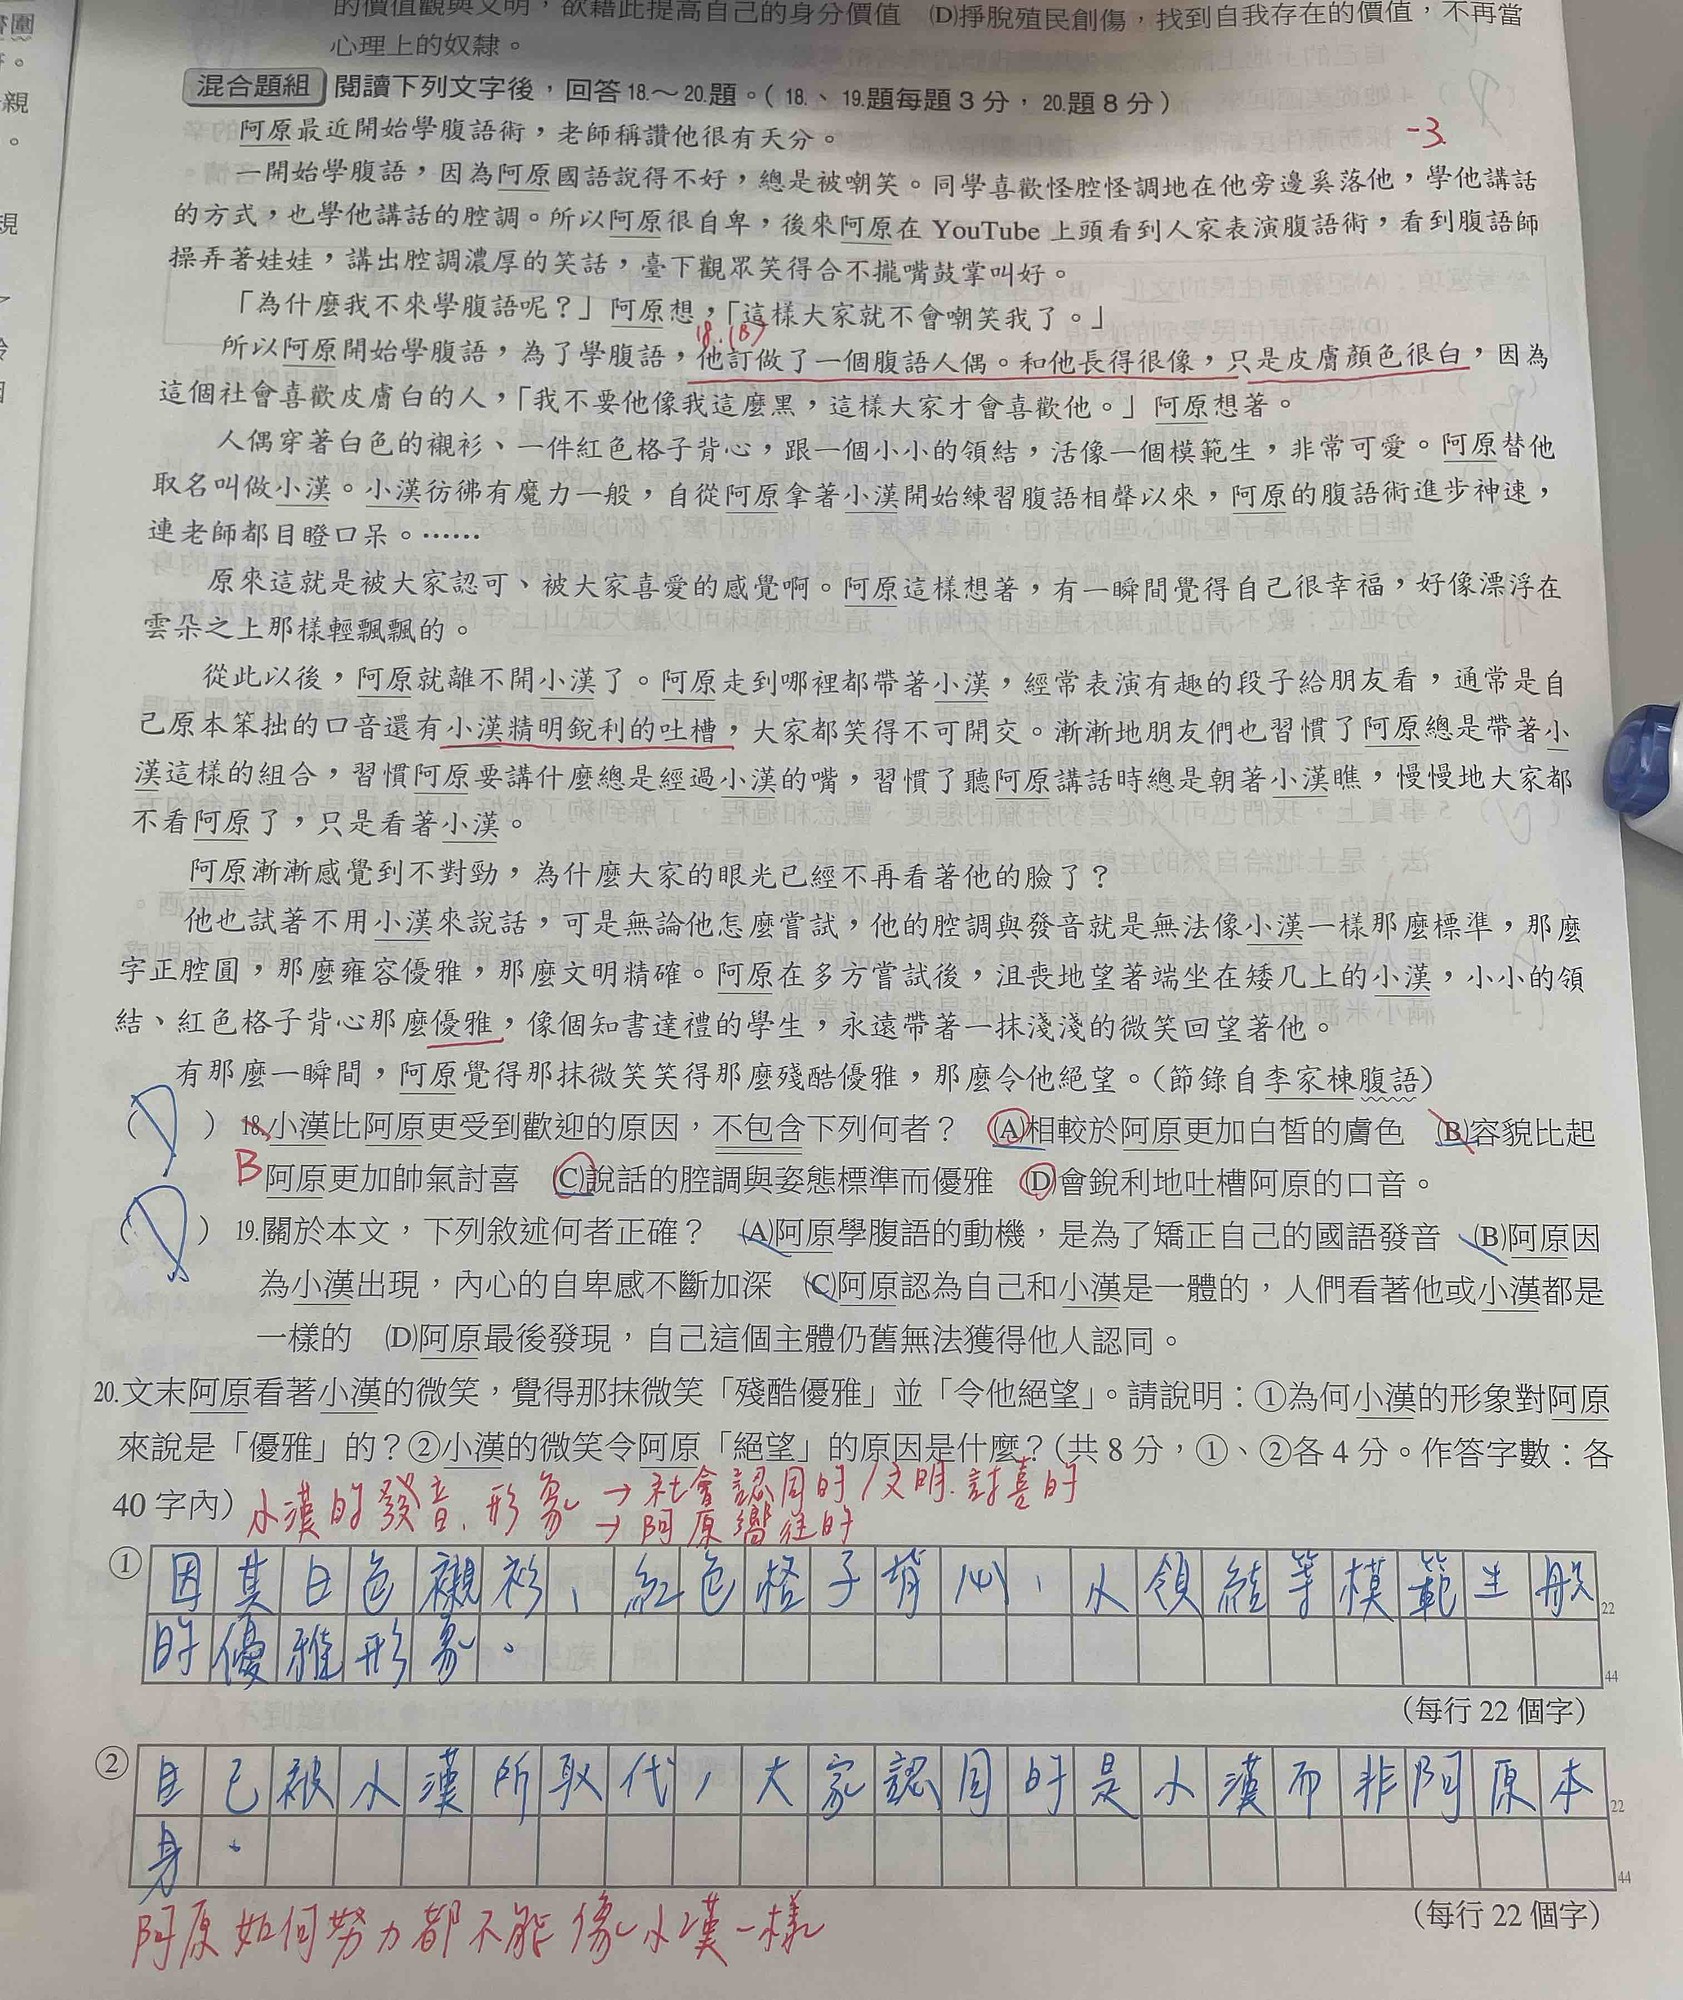 的價值觀與文明，欲藉此提高自己的身分價值　(D)掙脫殖民創傷，找到自我存在的價值，不再當
心理上的奴隸。
混合題組 閱讀下列文字後，回答18.～20.題。（18.、19.題每題3分，20.題8分）
-3
阿原最近開始學腹語術，老師稱讚他很有天分。
一開始學腹語，因為阿原國語說得不好，總是被嘲笑。同學喜歡怪腔怪調地在他旁邊奚落他，學他講話
的方式，也學他講話的腔調。所以阿原很自卑，後來阿原在 YouTube 上頭看到人家表演腹語術，看到腹語師
操弄著娃娃，講出腔調濃厚的笑話，臺下觀眾笑得合不攏嘴鼓掌叫好。
「為什麼我不來學腹語呢？」阿原想，「這樣大家就不會嘲笑我了。」
18.(B)
所以阿原開始學腹語，為了學腹語，他訂做了一個腹語人偶。和他長得很像，只是皮膚顏色很白，因為
這個社會喜歡皮膚白的人，「我不要他像我這麼黑，這樣大家才會喜歡他。」阿原想著。
人偶穿著白色的襯衫、一件紅色格子背心，跟一個小小的領結，活像一個模範生，非常可愛。阿原替他
取名叫做小漢。小漢彷彿有魔力一般，自從阿原拿著小漢開始練習腹語相聲以來，阿原的腹語術進步神速，
連老師都目瞪口呆。……
原來這就是被大家認可、被大家喜愛的感覺啊。阿原這樣想著，有一瞬間覺得自己很幸福，好像漂浮在
雲朵之上那樣輕飄飄的。
從此以後，阿原就離不開小漢了。阿原走到哪裡都帶著小漢，經常表演有趣的段子給朋友看，通常是自
己原本笨拙的口音還有小漢精明銳利的吐槽，大家都笑得不可開交。漸漸地朋友們也習慣了阿原總是帶著小
漢這樣的組合，習慣阿原要講什麼總是經過小漢的嘴，習慣了聽阿原講話時總是朝著小漢瞧，慢慢地大家都
不看阿原了，只是看著小漢。
阿原漸漸感覺到不對勁，為什麼大家的眼光已經不再看著他的臉了？
他也試著不用小漢來說話，可是無論他怎麼嘗試，他的腔調與發音就是無法像小漢一樣那麼標準，那麼
字正腔圓，那麼雍容優雅，那麼文明精確。阿原在多方嘗試後，沮喪地望著端坐在矮几上的小漢，小小的領
結、紅色格子背心那麼優雅，像個知書達禮的學生，永遠帶著一抹淺淺的微笑回望著他。
有那麼一瞬間，阿原覺得那抹微笑笑得那麼殘酷優雅，那麼令他絕望。（節錄自李家棟腹語）
（D）18.小漢比阿原更受到歡迎的原因，不包含下列何者？　(A)相較於阿原更加白皙的膚色　(B)容貌比起
B 阿原更加帥氣討喜　(C)說話的腔調與姿態標準而優雅　(D)會銳利地吐槽阿原的口音。
（D）19.關於本文，下列敘述何者正確？　(A)阿原學腹語的動機，是為了矯正自己的國語發音　(B)阿原因
為小漢出現，內心的自卑感不斷加深　(C)阿原認為自己和小漢是一體的，人們看著他或小漢都是
一樣的　(D)阿原最後發現，自己這個主體仍舊無法獲得他人認同。
20.文末阿原看著小漢的微笑，覺得那抹微笑「殘酷優雅」並「令他絕望」。請說明：①為何小漢的形象對阿原
來說是「優雅」的？②小漢的微笑令阿原「絕望」的原因是什麼？（共8分，①、②各4分。作答字數：各
40字內）
小漢的發音、形象 → 社會認同的/文明、討喜的
→ 阿原嚮往的
① 因其白色襯衫、紅色格子背心、小領結等模範生般
22
的優雅形象。
44
（每行22個字）
② 自己被小漢所取代，大家認同的是小漢而非阿原本
22
身。
44
（每行22個字）
阿原如何努力都不能像小漢一樣